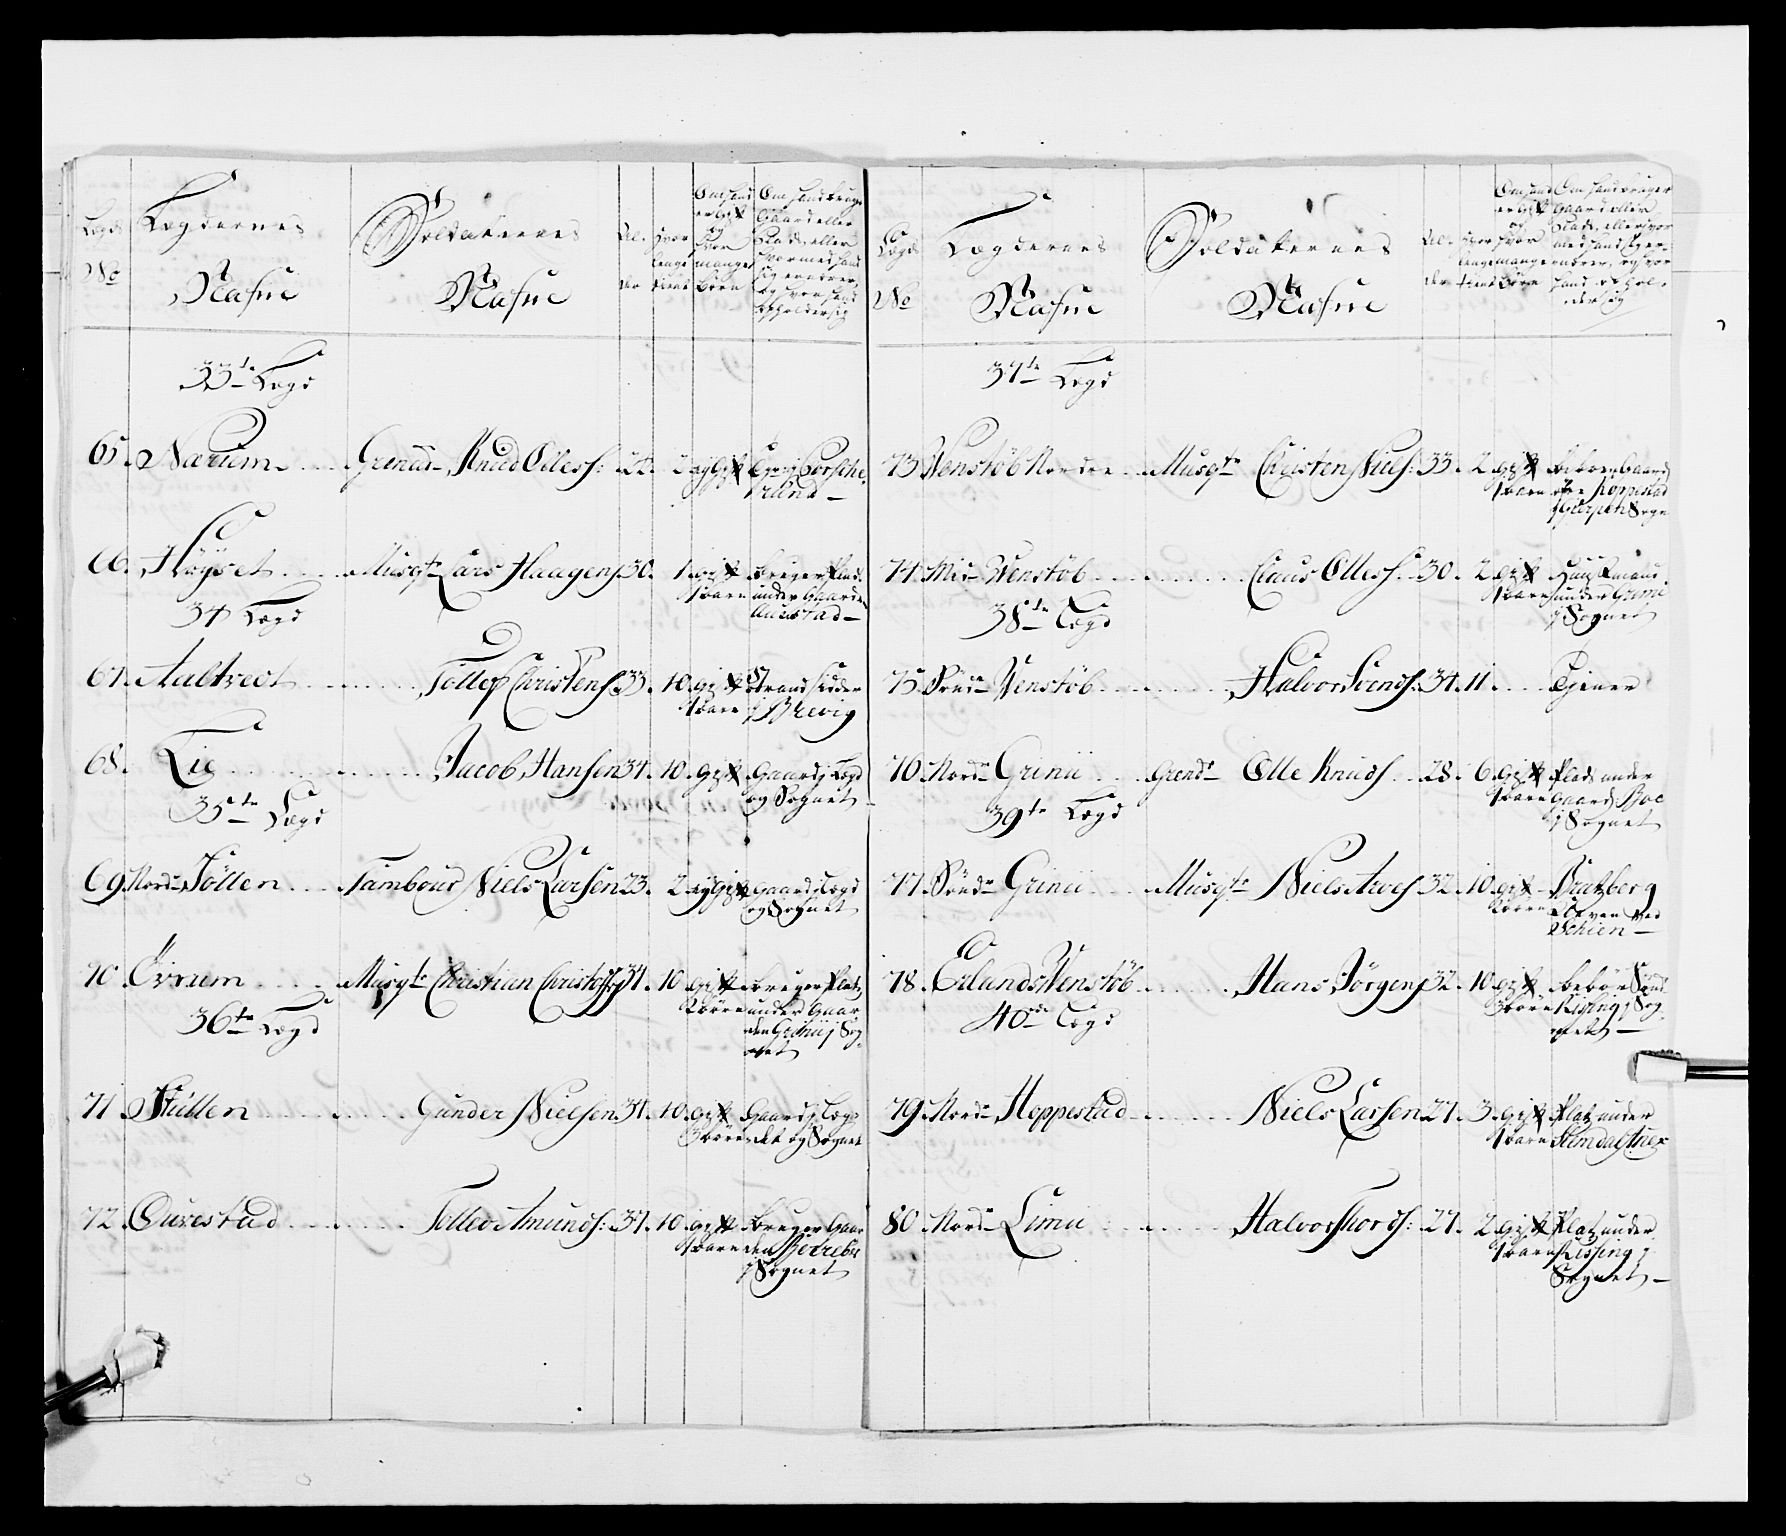 Lægds No
Lægdernes Nafne
Soldaternes Nafne
Al- der
Hvor lenge tient
Om hand er gift og hvor mange Börn
Om hand bruger Gaard eller Plads, eller hvormed hand sig ernærer, og hvor hand opholder sig
33te Lægd
65. Nærum Grenad- Knud Olless: 22. 2 ej gift
66. Høyset Musqte Lars Haagens 30. 1 gift 1 barn bruger Plads under Gaarden Aurstad
34 Lægd
67. Aaltvedt Tollef Christens: 33. 10. gift 1 barn Strandsidder i Brevig
68. Lie Jacob Hansen 34. 10. gift Gaard j Lægd og Sognet
35te Lægd
69. Nord- Töllen Tambour Niels Larsen 23. 2 ej gift Gaard j Lægd og Sognet
70. Övrum Musqte Christian Christoffs 34. 10 gift 2 börn bruger Platz under Gaarden Grinii j Sognet
36te Lægd
71. Stüllen Gunder Nielsen 34. 10 gift 3 börn Gaard j Lægdet og Sognet
72. Ourestad Tolleo Amunds: 37. 10. gift 1 barn bruger Gaarden j Sognet
Lægds No
Lægdernes Nafne
Soldaternes Nafne
Al- der
Hvor lenge tient
Om hand er gift og hvor mange börn
Om hand bruger Gaard eller Plads, eller hvormed hand sig ernærer, og hvor hand opholder sig
37te Lægd
73. Venstöb Nordre Musqte Christen Niels: 33. 2 gift 1 barn beboer Gaard Hoppestad j Gierpen Sogn
74. Mid- Wenstöb Claus Olless: 30. 2 gift 1 barn Huusmand under Grinii j Sognet
38te Lægd
75. Sönd- Venstöb Halvor Svends: 34. 11. Tjener
76. Nord- Grinii Grendr Olle Knuds 28. 6 gift 1 barn Plads under Gaard Boe j Sognet
39te Lægd
77. Sönd- Grinii Musqte Niels Arves 32. 10. gift 2 börn Bratzberg Cleven ved Schien
78. Erlands Venstöb Hans Jörgens 32. 10 gift 3 börn beboer Sönd Rising j Sognet
40de Lægd
79. Nord- Hoppestad Niels Larsen 27. 3. gift 1 barn Platz under
80. Nord- Limii Halvor Thords: 27. 2 gift 1 barn Platz under Rissing j Sognet